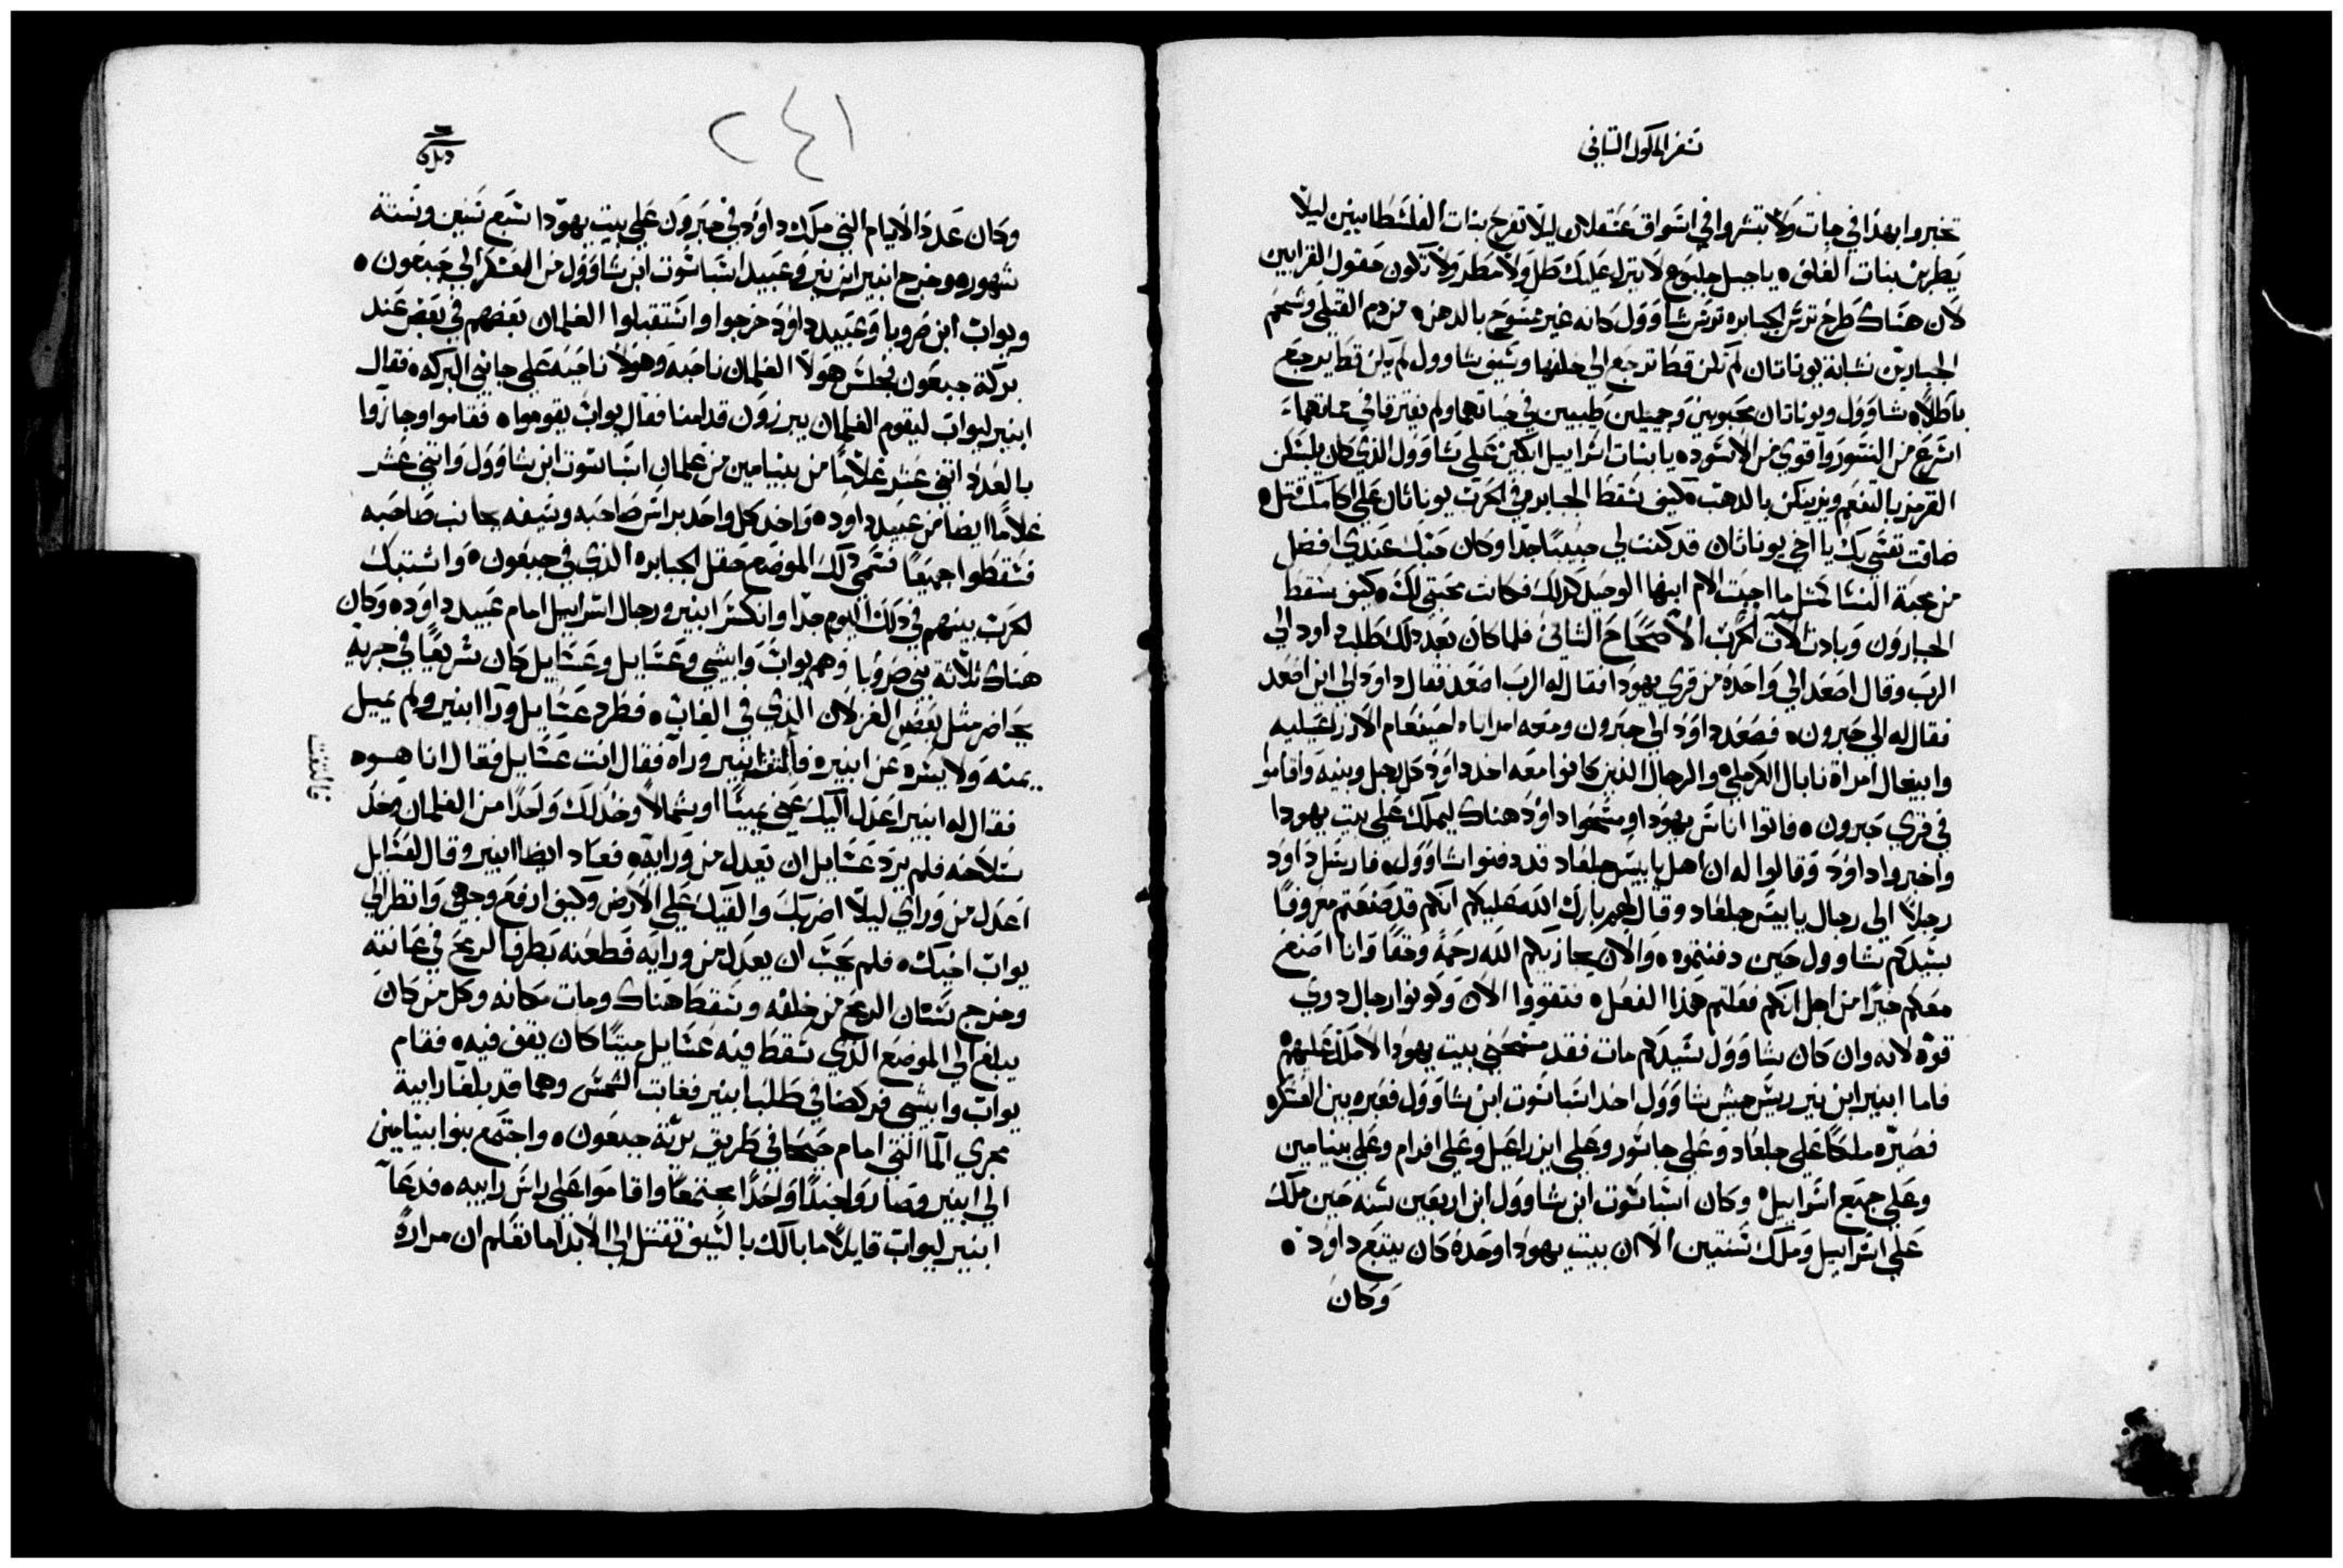 سفر الملوك الثاني
تخبروا بهذا في جات ولا تبشروا في اسواق عسقلان ليلا تفرح بنات الفلسطانيين ليلا
يطربن بنات الغلف ٥ يا جبل جلبوع لا ينزل عليك طل ولا مطر ولا تكون حقول القرابين
لان هناك طرح ترس الجبابره ترس شاوول كانه غير ممسوح بالدهن ٥ من دم القتلي وشحم
الجبارين نشابة يوناتان لم تكن قط ترجع الي خلفها وسيف شاوول لم يكن قط يرجع
باطلاً ٥ شاوول ويوناتان محبوبين وجميلين طيبين في حياتهما ولم يفترقا في مماتهما
اسرع من النسور واقوي من الاسود ٥ يا بنات اسراييل ابكين علي شاوول الذي كان يلبسكن
القرمز بالتنعم ويزينكن بالدهب ٥ كيف سقط الجبابره في الحرب يوناتان علي اكامك قتل ٥
ضاقت نفسي بك يا اخي يوناتان قد كنت لي حبيبًا جدًا وكان حبك عندي افضل
من محبة النسا كمثل ما احبت الام ابنها الوحيد كذلك فكانت محبتي لك ٥ كيف سقط
الجبارون وبادت الات الحرب الاصحاح الثاني فلما كان بعد ذلك طلب داود الي
الرب وقال اصعد الي واحدة من قري يهودا فقال له الرب اصعد فقال داود الي اين اصعد
فقال له الي حبرون ٥ فصعد داود الي حبرون ومعه امراتاه احينعام الازراعيليه
وابيغال امراة نابال الكرملي ٥ والرجال الذين كانوا معه اخد داود كل رجل وبنيه واقاموا
في قري حبرون ٥ فاتوا اناس يهودا ومسحوا داود هناك ليملك علي بيت يهودا
واخبروا داود وقالوا له ان اهل يابيس جلعاد قد دفنوا شاوول ٥ فارسل داود
رجلاً الي رجال يابيس جلعاد وقال لهم بارك الله عليكم انكم قد صنعتم معروفًا
بسيدكم شاوول حين دفنتموه ٥ والان يجازيكم الله رحمة وحقًا وانا اصنع
معكم خيرًا من اجل انكم فعلتم هذا الفعل ٥ فتقووا الان وكونوا رجال دوي
قوة لانه وان كان شاوول سيدكم مات فقد مسحني بيت يهودا لاملك عليهم ٥
فاما ابنير ابن نير ريس جيش شاوول اخد اشباشوت ابن شاوول فعبره بين العسكر ٥
فصيره ملكًا علي جلعاد وعلي جاشور وعلي ايزراعيل وعلي افرام وعلي بنيامين
وعلي جميع اسراييل ٥ وكان اشباشوت ابن شاوول ابن اربعين سنه حين ملك
علي اسراييل وملك سنتين الا ان بيت يهودا وحده كان يتبع داود ٥
وكان
٢٤١
وكان عدد الايام التي ملك داود في حبرون علي بيت يهودا سبع سنين وسته
شهور ٥ وخرج ابنير ابن نير وعبيد اشباشوت ابن شاوول من العسكر الي جبعون ٥
ويواب ابن صرويا وعبيد داود خرجوا واستقبلوا الغلمان بعضهم في بعض عند
بركة جبعون فجلس هولا الغلمان ناحيه وهولا ناحيه علي جانبي البركه ٥ فقال
ابنير ليواب ليقوم الغلمان يبرزون قدامنا فقال يواب يقوموا ٥ فقاموا وجازوا
بالعدد اتني عشر غلامًا من بنيامين من غلمان اشباشوت ابن شاوول واتني عشر
غلامًا ايضا من عبيد داود ٥ واخد كل واحد براس صاحبه وسيفه بجانب صاحبه
فسقطوا جميعًا فسمي ذلك الموضع حقل الجبابره الذي في جبعون ٥ واشتبك
الحرب بينهم في ذلك اليوم جدًا وانكسر ابنير ورجال اسراييل امام عبيد داود ٥ وكان
هناك ثلاثة بني صرويا وهم يواب وابيشي وعسايل وعسايل كان سريعًا في جريه
يحاضر مثل بعض الغزلان الذي في الغاب ٥ فطرد عسايل ورا ابنير ولم يميل
يمنه ولا يسره عن ابنير ٥ فالتفت ابنير وراه فقال انت عسايل فقال انا هوه
فالتفت
فقال له ابنير اعدل اليك عني يمينًا او شمالاً وخد لك واحدًا من الغلمان وخد
سلاحه فلم يرد عسايل ان يعدل من ورايه ٥ فعاد ايضا ابنير وقال لعسايل
اعدل من وراي ليلاً اضربك والقيك علي الارض وكيف ارفع وجهي وانظر الي
يواب اخيك ٥ فلم يحب ان يعدل من ورايه فطعنه بطرف الرمح في عانته
وخرج سنان الرمح من خلفه وسقط هناك ومات مكانه وكل من كان
يبلغ الي الموضع الذي سقط فيه عسايل ميتًا كان يقف فيه ٥ فقام
يواب وابيشي فركضا في طلب ابنير فغابت الشمس وهما قد بلغا رابية
مجري الما التي امام جيحا في طريق برية جبعون ٥ واجتمع بنوا بنيامين
الي ابنير وصاروا جندًا واحدًا مجتمعًا واقاموا علي راس رابيه ٥ فدعا
ابنير ليواب قايلاً ما بالك بالسيف تقتل الي الابد اما تعلم ان مرارة